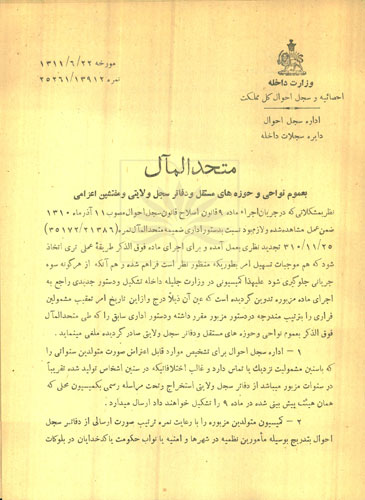 وزارت داخله
احصائیه و سجل احوال کل مملکت
اداره سجل احوال
دایره سجلات داخله
مورخه ۱۳۱۱/۶/۲۲
نمره ۲۵۲۶۱/۱۳۹۱۲
متحدالمآل
بعموم نواحی و حوزه های مستقل و دفاتر سجل ولایتی و مفتشین اعزامی
نظر بمشکلاتی که در جریان اجراء ماده ۹ قانون اصلاح قانون سجل احوال مصوب ۱۱ آذر ماه ۱۳۱۰
ضمن عمل مشاهده شده و لازم بود نسبت بدستور اداری ضمیمه متحدالمآل نمره (۳۵۱۷۲/۲۱۳۸۶)
۳۱۰/۱۱/۲۵ تجدید نظری بعمل آمده و برای اجرای ماده فوق الذکر طریقه عملی تری اتخاذ
شود که هم موجبات تسهیل امر بطوریکه منظور نظر است فراهم شده و هم آنکه از هر گونه سوء
جریانی جلوگیری شود علیهذا کمیسیونی در وزارت جلیله داخله تشکیل و دستور جدیدی راجع به
اجرای ماده مزبوره تدوین گردیده است که عین آن ذیلاً درج و از این تاریخ امر تعقیب مشمولین
فراری را بترتیب مندرجه در دستور مزبور مقرر داشته و دستور اداری سابق را که طی متحدالمآل
فوق الذکر بعموم نواحی و حوزه های مستقل و دفاتر سجل ولایتی صادر گردیده ملغی مینماید .
۱ – اداره سجل احوال برای تشخیص موارد قابل اعتراض صورت متولدین سنواتی را
که باسنین مشمولیت نزدیك یا تماس دارد و غالب اختلافاتیکه در سنین اشخاص تولید شده تقریباً
در سنوات مزبور میباشد از دفاتر سجل ولایتی استخراج و تحت مراسله رسمی بکمیسیون محلی که
همان هیئت پیش بینی شده در ماده ۹ را تشکیل خواهند داد ارسال میدارد .
۲ – کمیسیون متولدین مزبوره را با رعایت نمره ترتیب صورت ارسالی از دفاتر سجل
احوال بتدریج بوسیله مأمورین نظمیه در شهرها و امنیه یا نواب حکومت یا کدخدایان در بلوکات